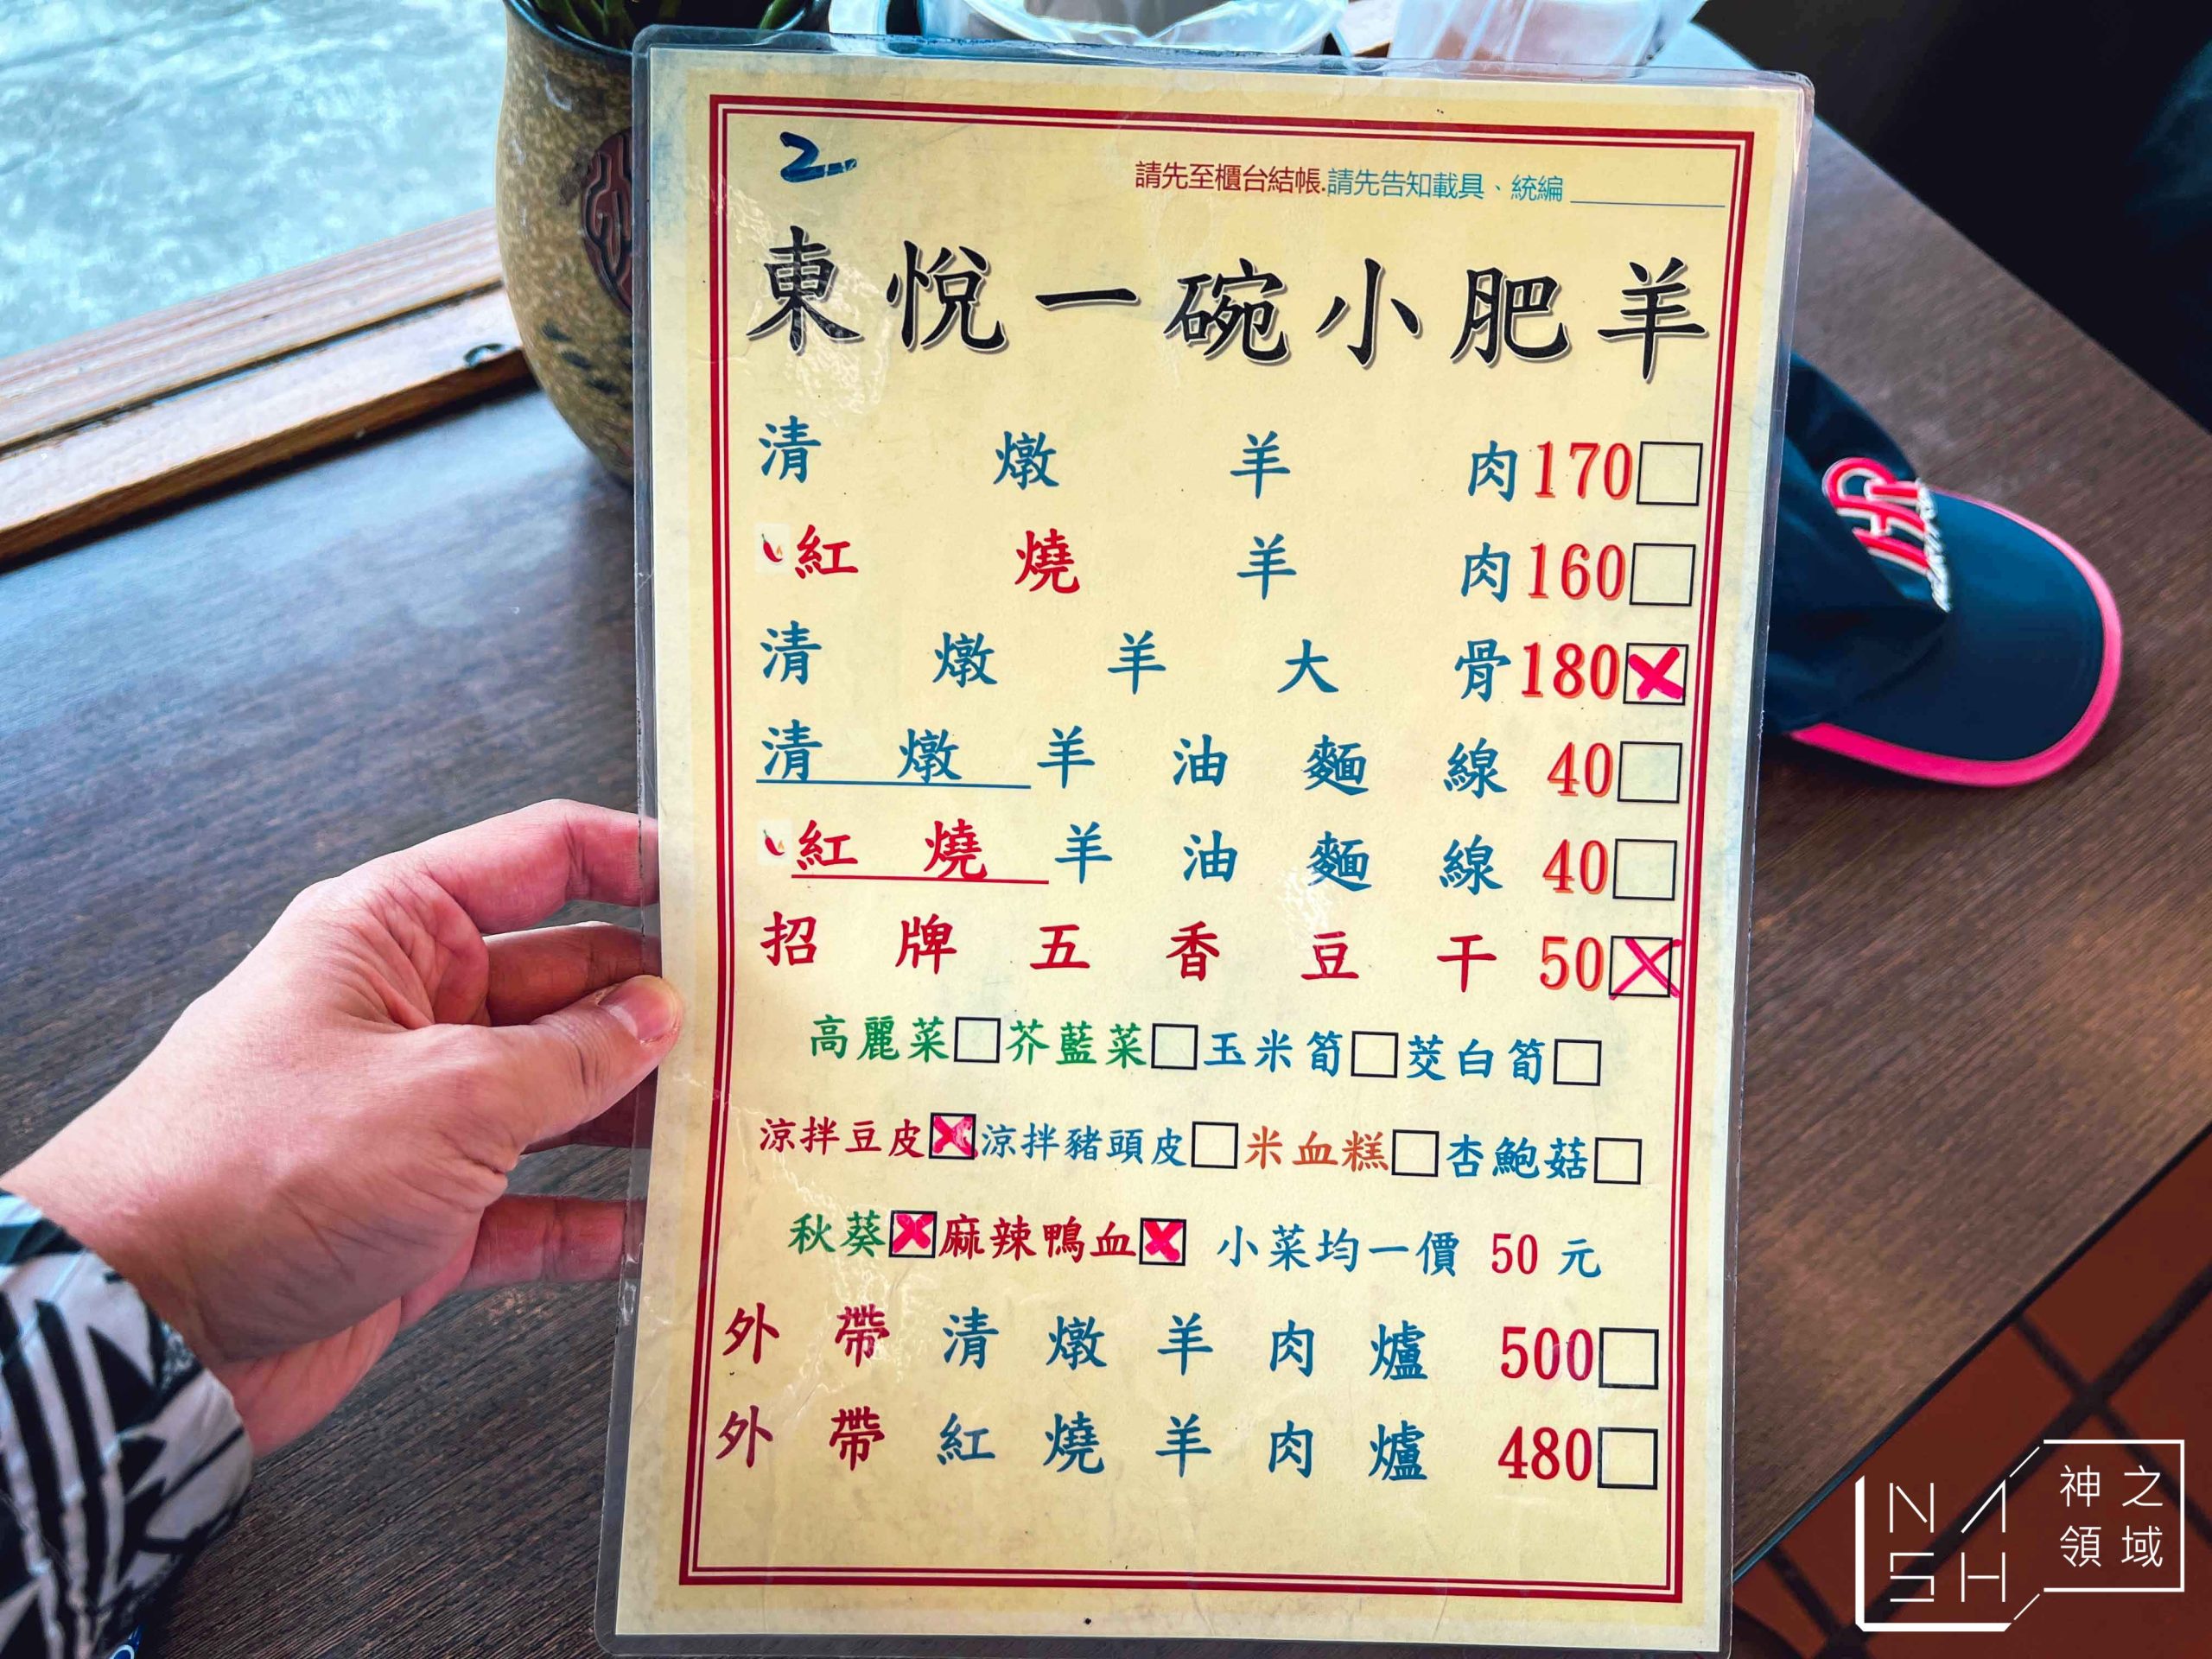 2
請先至櫃台結帳.請先告知載具、統編
東悅一碗小肥羊
清燉羊肉170
紅燒羊肉160
清燉羊大骨180
清燉羊油麵線 40
紅燒羊油麵線 40
招牌五香豆干 50
高麗菜 芥藍菜 玉米筍 茭白筍
涼拌豆皮 涼拌豬頭皮 米血糕 杏鮑菇
秋葵 麻辣鴨血 小菜均一價 50 元
外帶清燉羊肉爐 500
外帶紅燒羊肉爐 480
NASH
神之領域